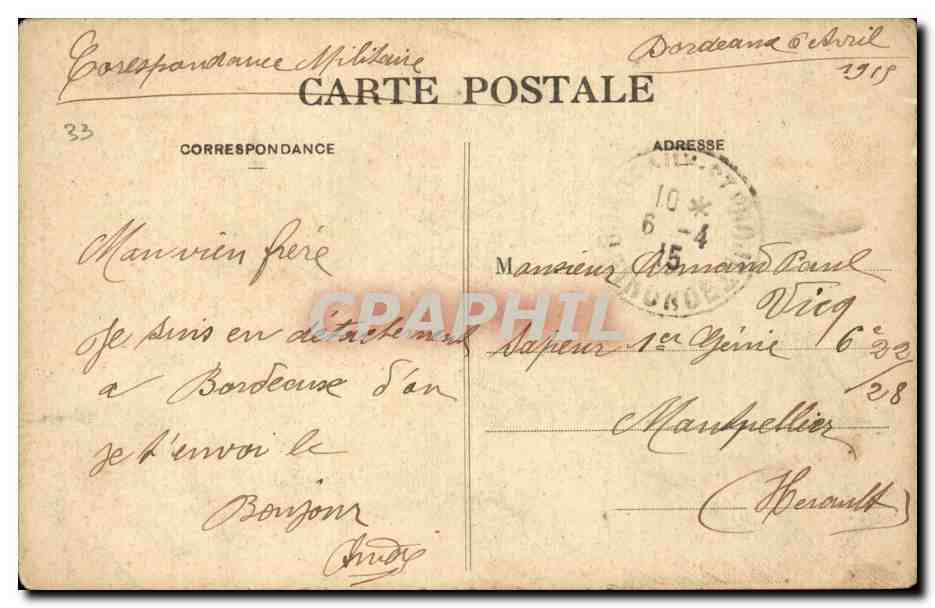 Corespondance Militaire
Bordeaux 6 Avril
1915
CARTE POSTALE
33
CORRESPONDANCE
ADRESSE
10 *
6 - 4
15
BORDEAUX
Mon vieu frère
Monsieur Armand Paul
Vicq
CRAPHIL
Je suis en détachement
Sapeur 1er Génie 6e 22/28
a Bordeaux d'ou
Montpellier
je t'envoi le
Bonjour
(Herault)
André